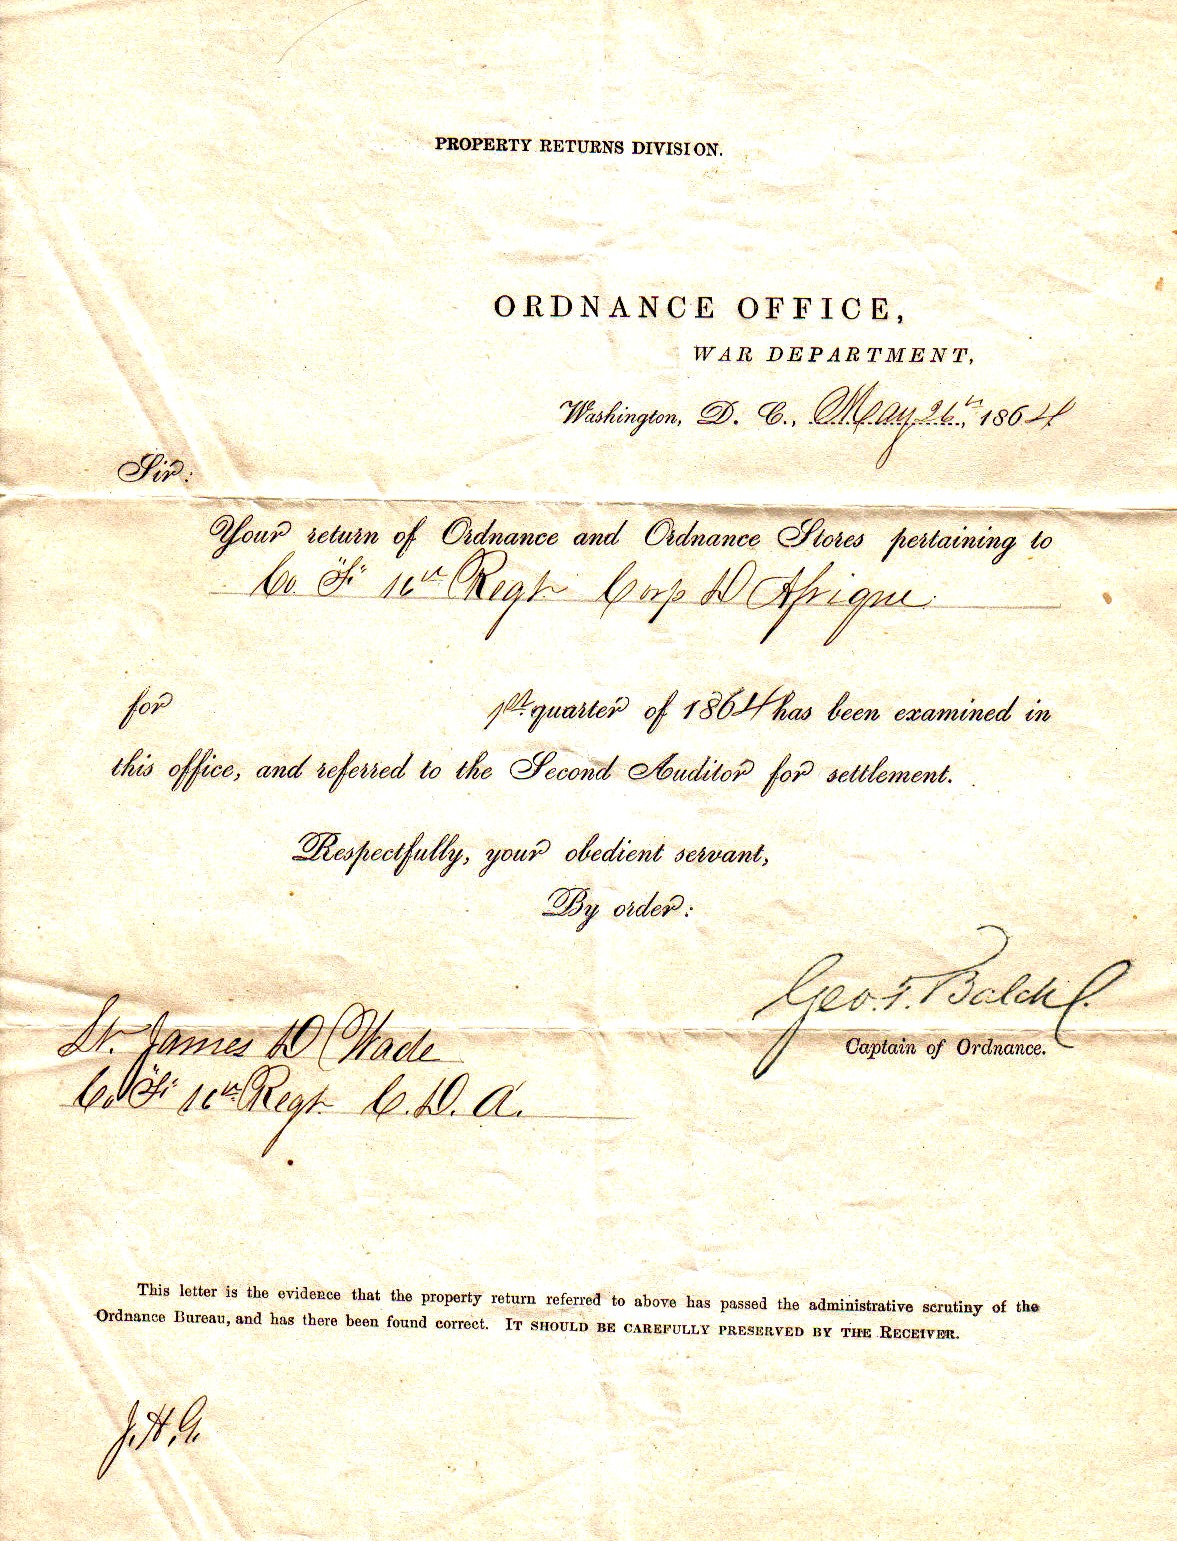 PROPERTY RETURNS DIVISION.
ORDNANCE OFFICE,
WAR DEPARTMENT,
Washington, D. C., May 26th, 1864
Sir:
Your return of Ordnance and Ordnance Stores pertaining to
Co. "F" 16th Regt Corp D Afrique
for 1st quarter of 1864 has been examined in
this office, and referred to the Second Auditor for settlement.
Respectfully, your obedient servant,
By order:
Geo. T. Balch
Captain of Ordnance.
Lt. James D Wade
Co "F" 16th Regt C. D. A.
This letter is the evidence that the property return referred to above has passed the administrative scrutiny of the
Ordnance Bureau, and has there been found correct. IT SHOULD BE CAREFULLY PRESERVED BY THE RECEIVER.
J. H. G.